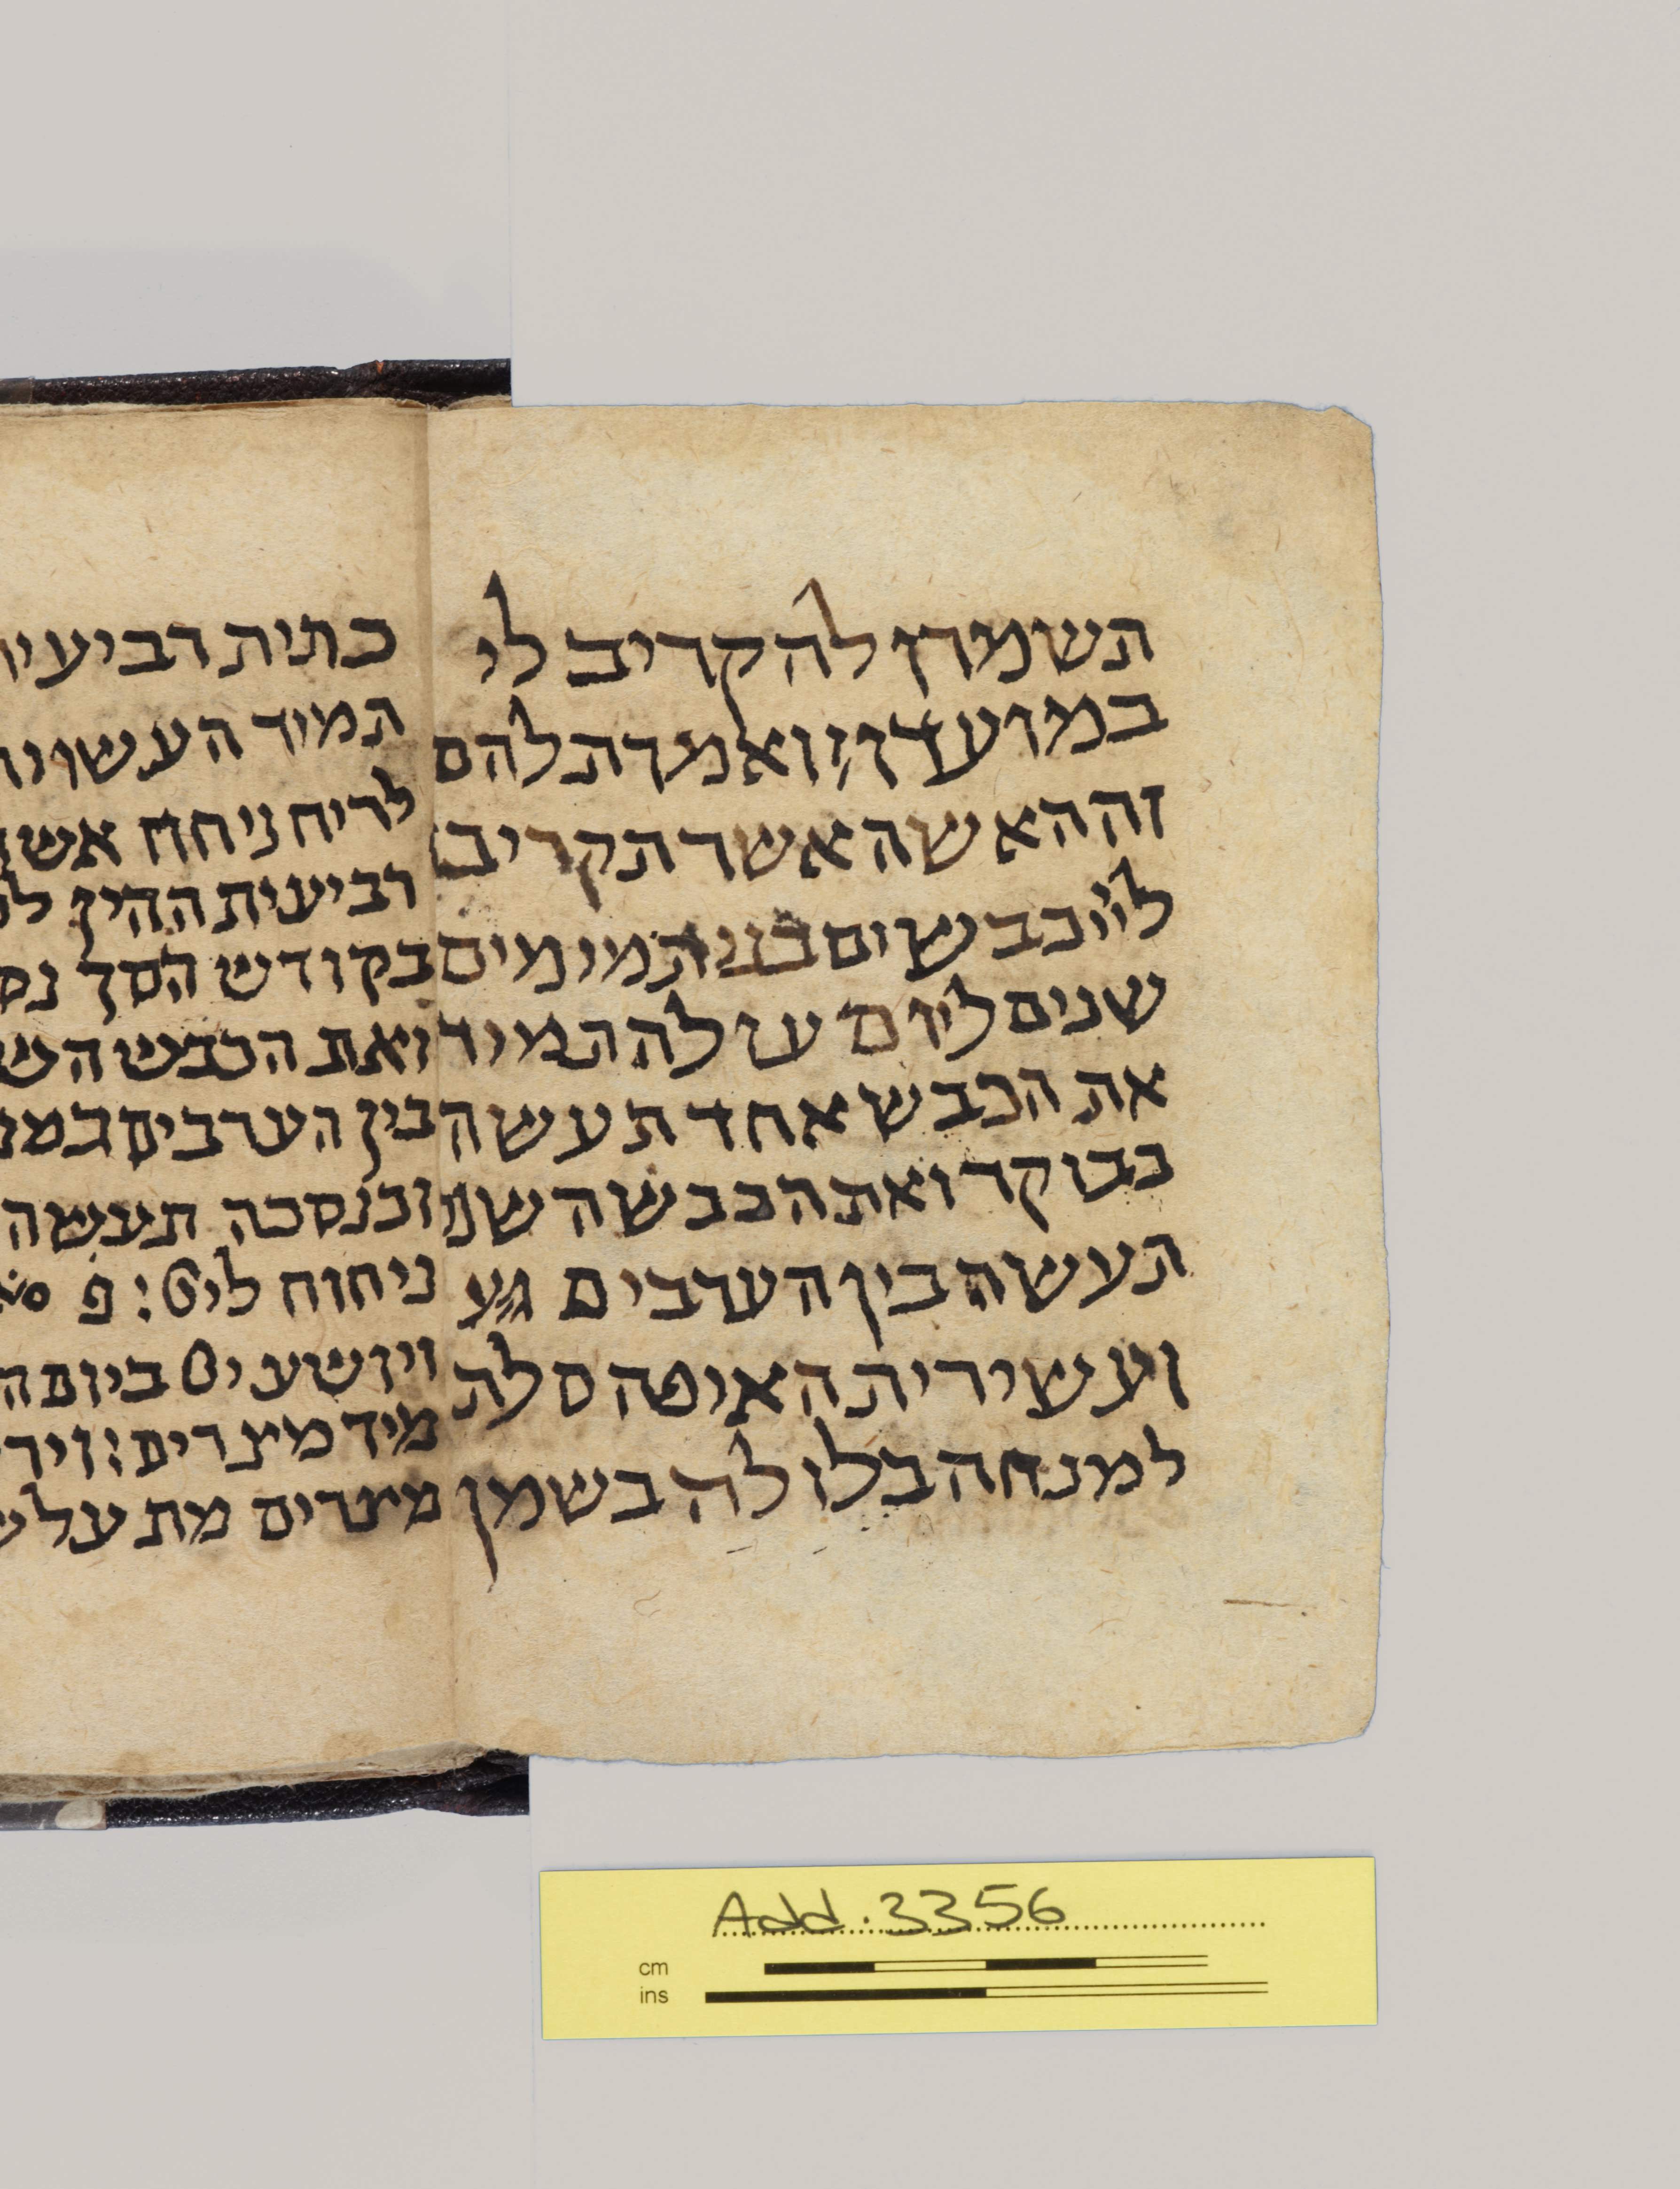 תשמרון להקריב לי
במועדו׃ ואמרת להם
זה האשה אשר תקריבו
ליי כבשים בני תמימים
שנים ליום עולה תמיד
את הכבש אחד תעשה
בבוקר ואת הכבש השני
תעשה בין הערבים
ועשירית האיפה סלת
למנחה בלולה בשמן
כתית רביעית
תמיד העשויה
לריח ניחח אשה
רביעית ההין
בקודש הסך נסך
ואת הכבש
בין הערבים
וכנסכה תעשה
ניחוח
ויושע ביום
מיד מצרים׃
מצרים מת על
Add. 3356
cm
ins